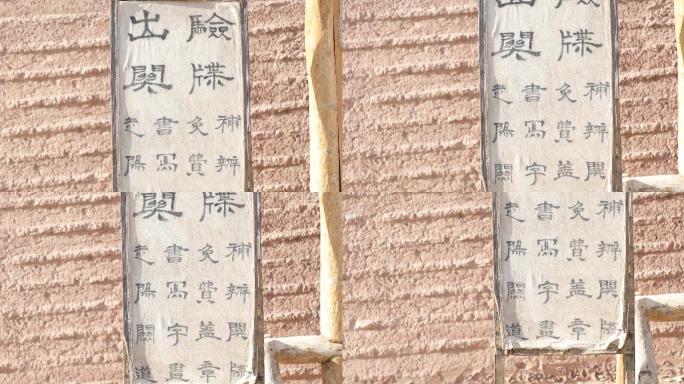 驗牒
出關
補辦
免費
書寫
走陽
驗牒
出關
補辦關
免費蓋
書寫字
走陽關
牒
關
補辦關牒
免費蓋章
書寫字畫
走陽關道
補辦關牒
免費蓋章
書寫字畫
走陽關道